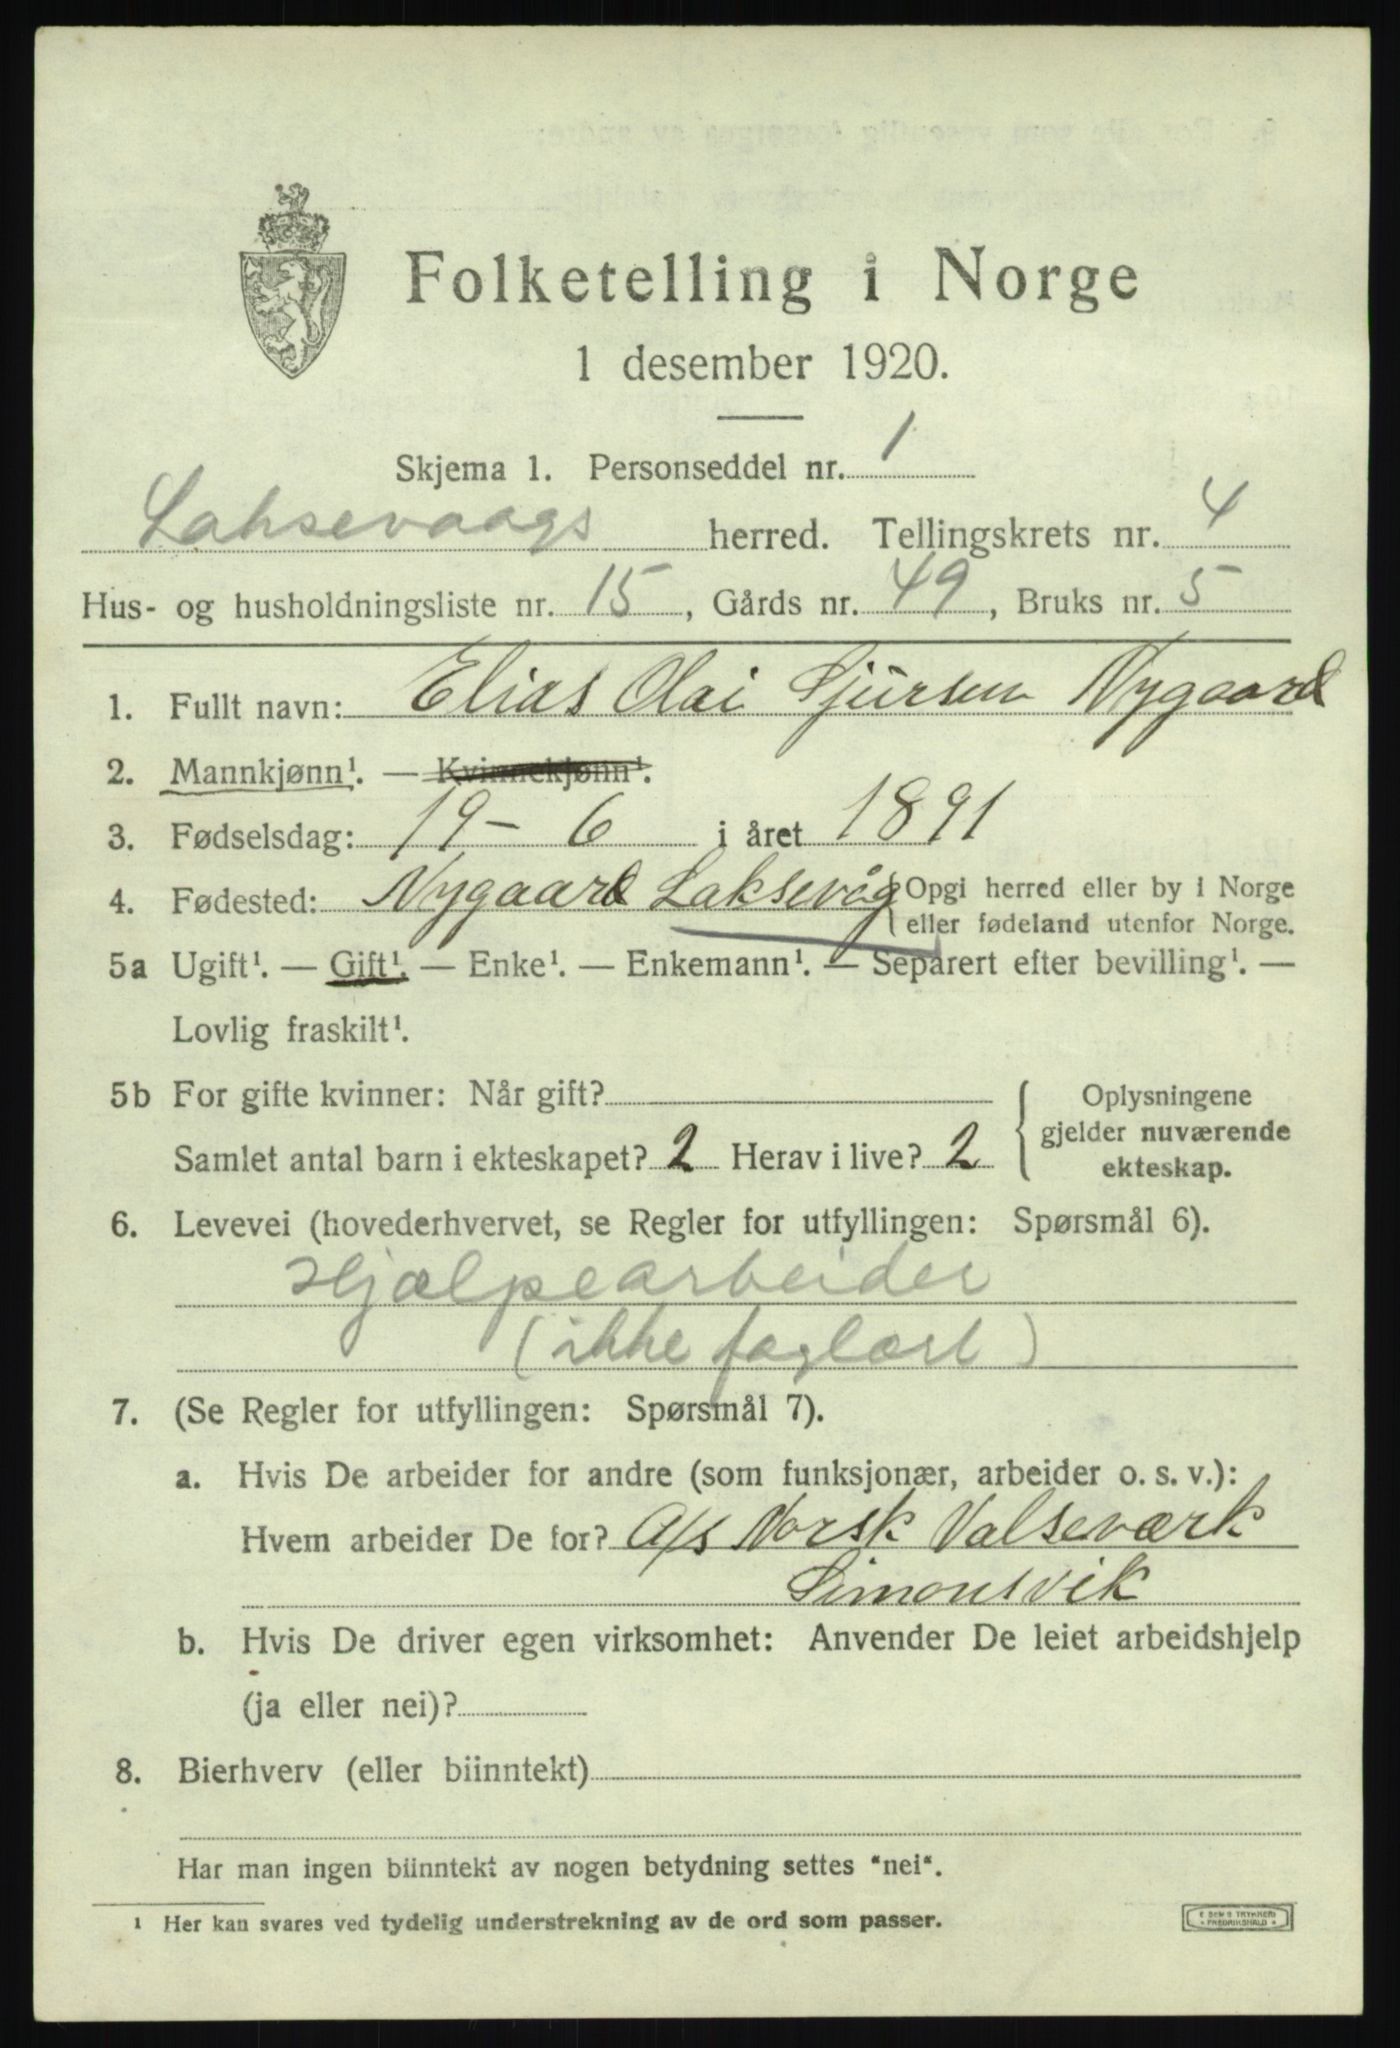 Folketelling i Norge
1 desember 1920.
Skjema 1. Personseddel nr. 1
Laksevaags herred. Tellingskrets nr. 4
Hus- og husholdningsliste nr. 15, Gårds nr. 49, Bruks nr. 5
1. Fullt navn: Elias Olai Sjursen Nygaard
2. Mannkjønn¹. — Kvinnekjønn¹.
3. Fødselsdag: 19 - 6 i året 1891
4. Fødested: Nygaard Laksevåg { Opgi herred eller by i Norge
eller fødeland utenfor Norge.
5a Ugift¹. — Gift¹. — Enke¹. — Enkemann¹. — Separert efter bevilling¹. —
Lovlig fraskilt¹.
5b For gifte kvinner: Når gift?
Samlet antal barn i ekteskapet? 2 Herav i live? 2
Oplysningene
gjelder nuværende
ekteskap.
6. Levevei (hovederhvervet, se Regler for utfyllingen: Spørsmål 6).
Hjælpearbeider
(ikke faglært)
7. (Se Regler for utfyllingen: Spørsmål 7).
a. Hvis De arbeider for andre (som funksjonær, arbeider o. s. v.):
Hvem arbeider De for? A/s Norsk Valseværk
Simonsvik
b. Hvis De driver egen virksomhet: Anvender De leiet arbeidshjelp
(ja eller nei)?
8. Bierhverv (eller biinntekt)
Har man ingen biinntekt av nogen betydning settes "nei".
¹ Her kan svares ved tydelig understrekning av de ord som passer.
E SEM'S TRYKKERI
FREDRIKSHALD